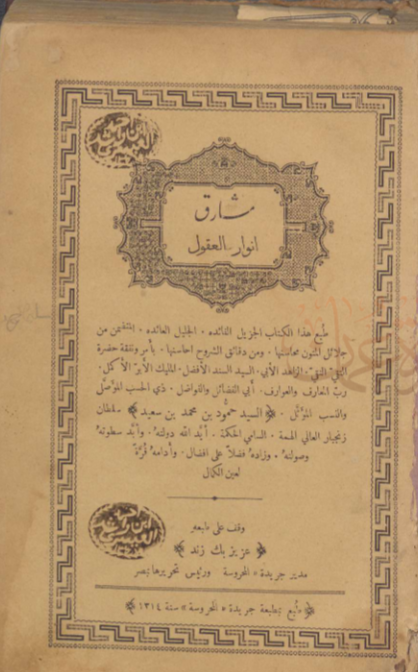 مشارق
انوار العقول
طُبع هذا الكتاب الجزيل الفائده ، الجليل العائده ، المتضمن من
جلائل المتون محاسنها ، ومن دقائق الشروح احاسنها ، بأمر ونفقة حضرة
التقي النقي الزاهد الأبي السيد السند الأفضل ، المليك الأبر الأكمل ،
ربّ المعارف والعوارف ، أبي الفضائل والفواضل ، ذي الحسب المؤصّل
والنسب المؤثّل ، ﴿ السيد حمود بن محمد بن سعيد ﴾ سلطان
زنجبار العالي الهمة ، السامي الحكمة ، أيّد الله دولتهُ ، وأبّد سطوتهُ
وصولتهُ ، وزادهُ فضلاً على افضال ، وأدامهُ قُرّة
لعين الكمال
وقف على طبعهِ
﴿ عزيز بك زند ﴾
مدير جريدة « المحروسة » ورئيس تحريرها بمصر
﴿ طُبع بمطبعة جريدة « المحروسة » سنة ١٣١٤ ﴾